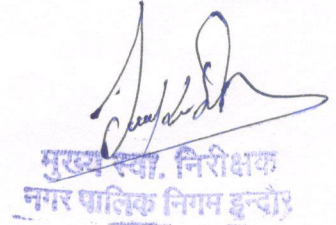 मुख्य स्वा. निरीक्षक
नगर पालिक निगम इन्दौर